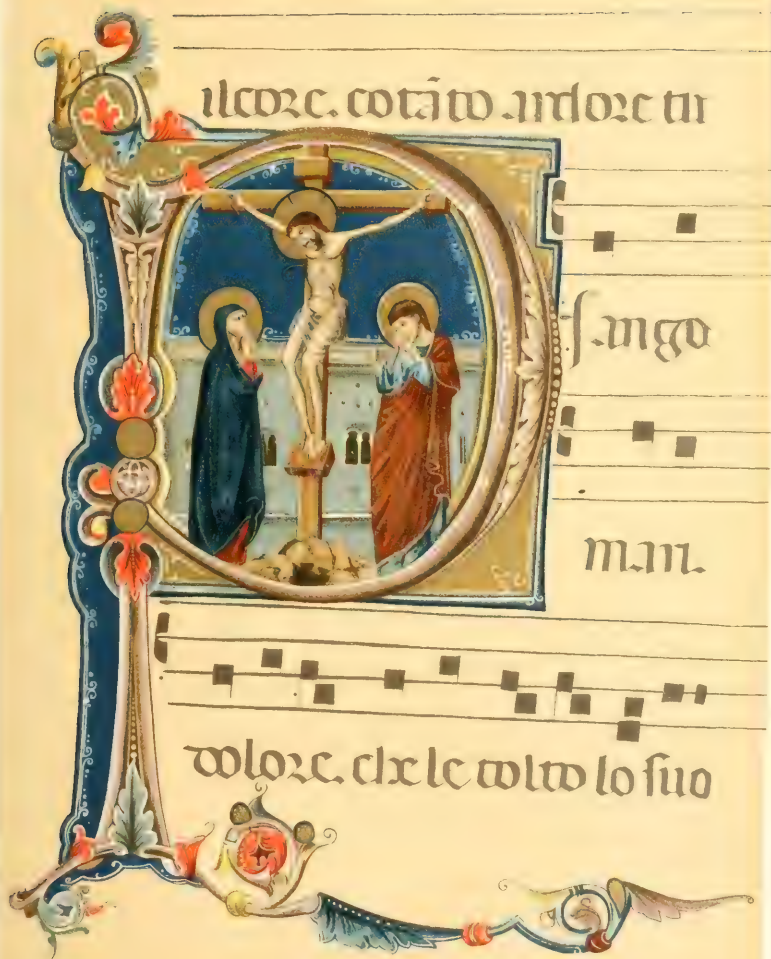 ilcore. cotãto .amore tu
P
sango
man.
dolore. che le tolto lo suo